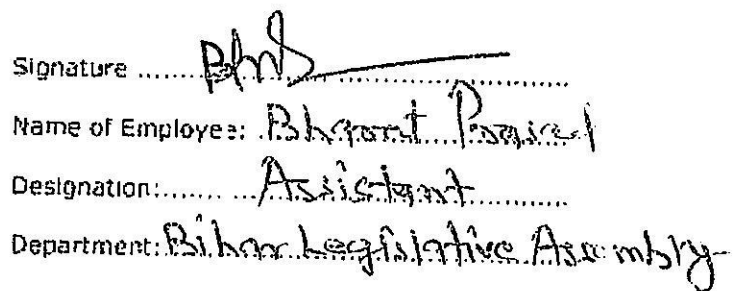 Signature ..................
Name of Employee: Bharat
Designation: Assistant
Department: Bihar Legislative Assembly